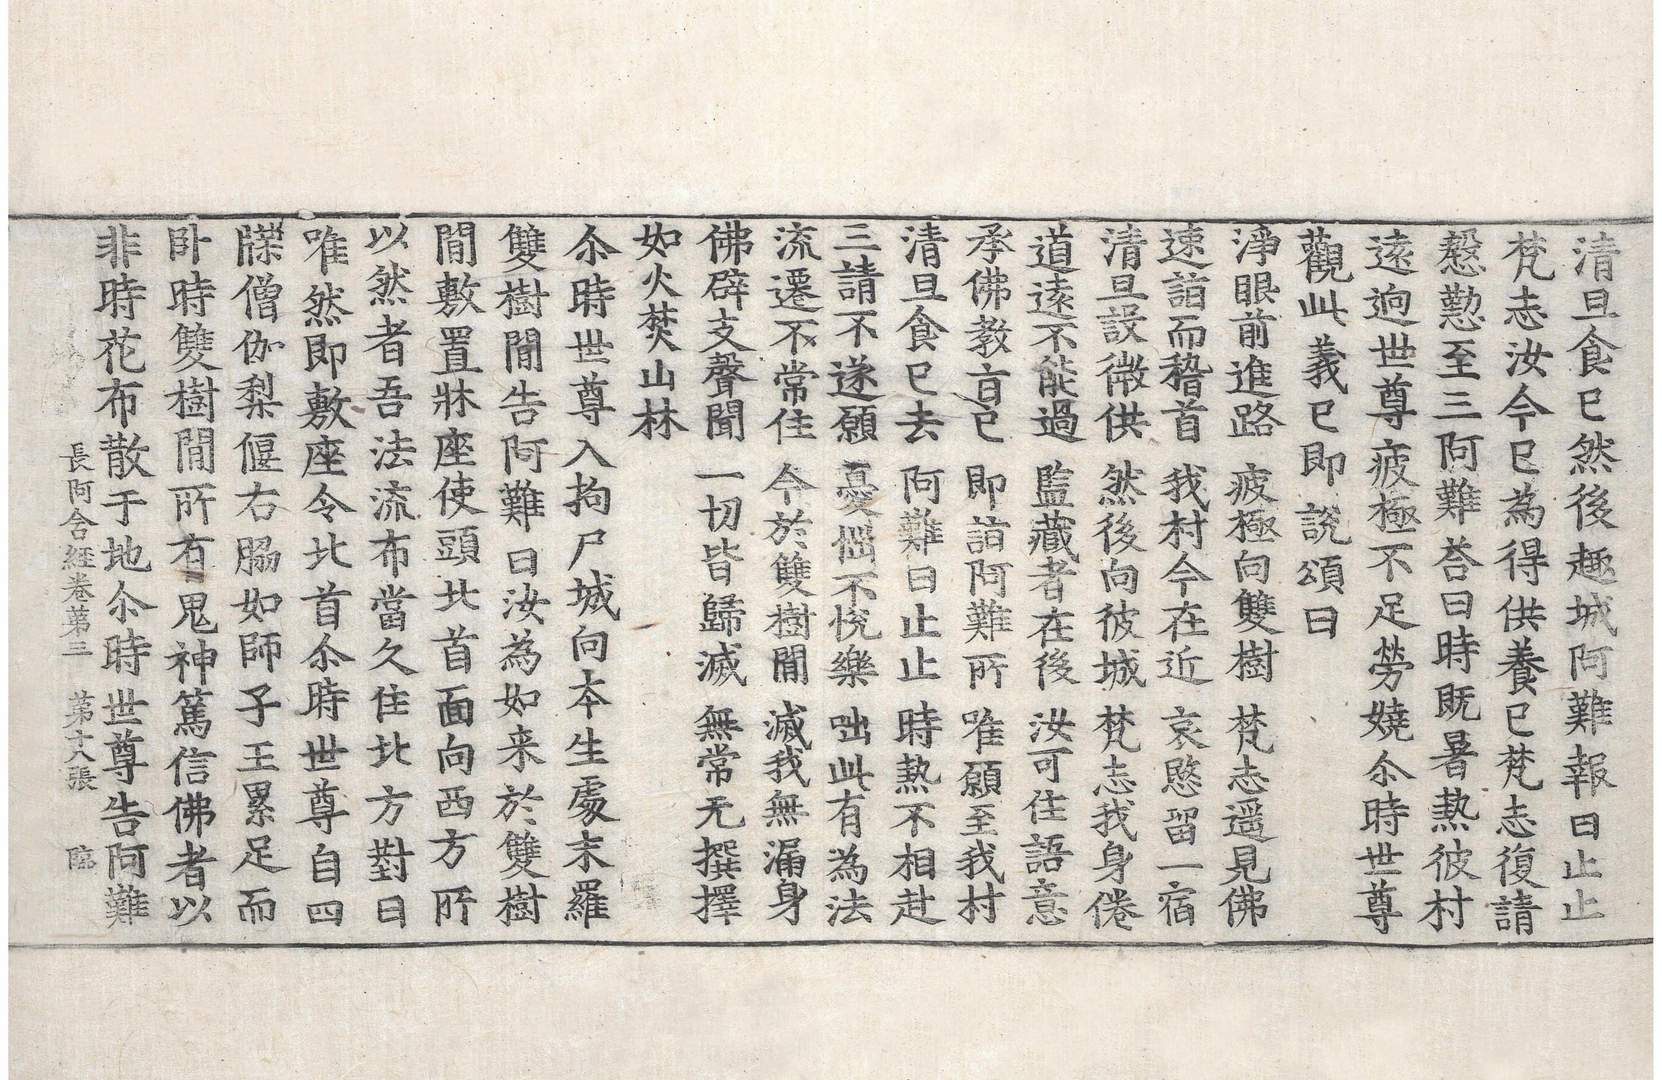 清旦食已然後趣城阿難報曰止止
梵志汝今已為得供養已梵志復請
慇懃至三阿難荅曰時既暑熱彼村
遠逈世尊疲極不足勞嬈尒時世尊
觀此義已即說頌曰
淨眼前進路 疲極向雙樹 梵志遥見佛
速詣而稽首 我村今在近 哀愍留一宿
清旦設微供 然後向彼城 梵志我身倦
道遠不能過 監藏者在後 汝可住語意
承佛教言已 即詣阿難所 唯願至我村
清旦食已去 阿難曰止止 時熱不相赴
三請不遂願 憂惱不悅樂 咄此有為法
流遷不常住 今於雙樹閒 滅我無漏身
佛辟支聲聞 一切皆歸滅 無常无撰擇
如火焚山林
尒時世尊入拘尸城向本生處末羅
雙樹閒告阿難曰汝為如来於雙樹
閒敷置牀座使頭北首面向西方所
以然者吾法流布當久住北方對曰
唯然即敷座令北首尒時世尊自四
牒僧伽梨偃右脇如師子王累足而
卧時雙樹閒所有鬼神篤信佛者以
非時花布散于地尒時世尊告阿難
長阿含經卷第三 第十八張 臨